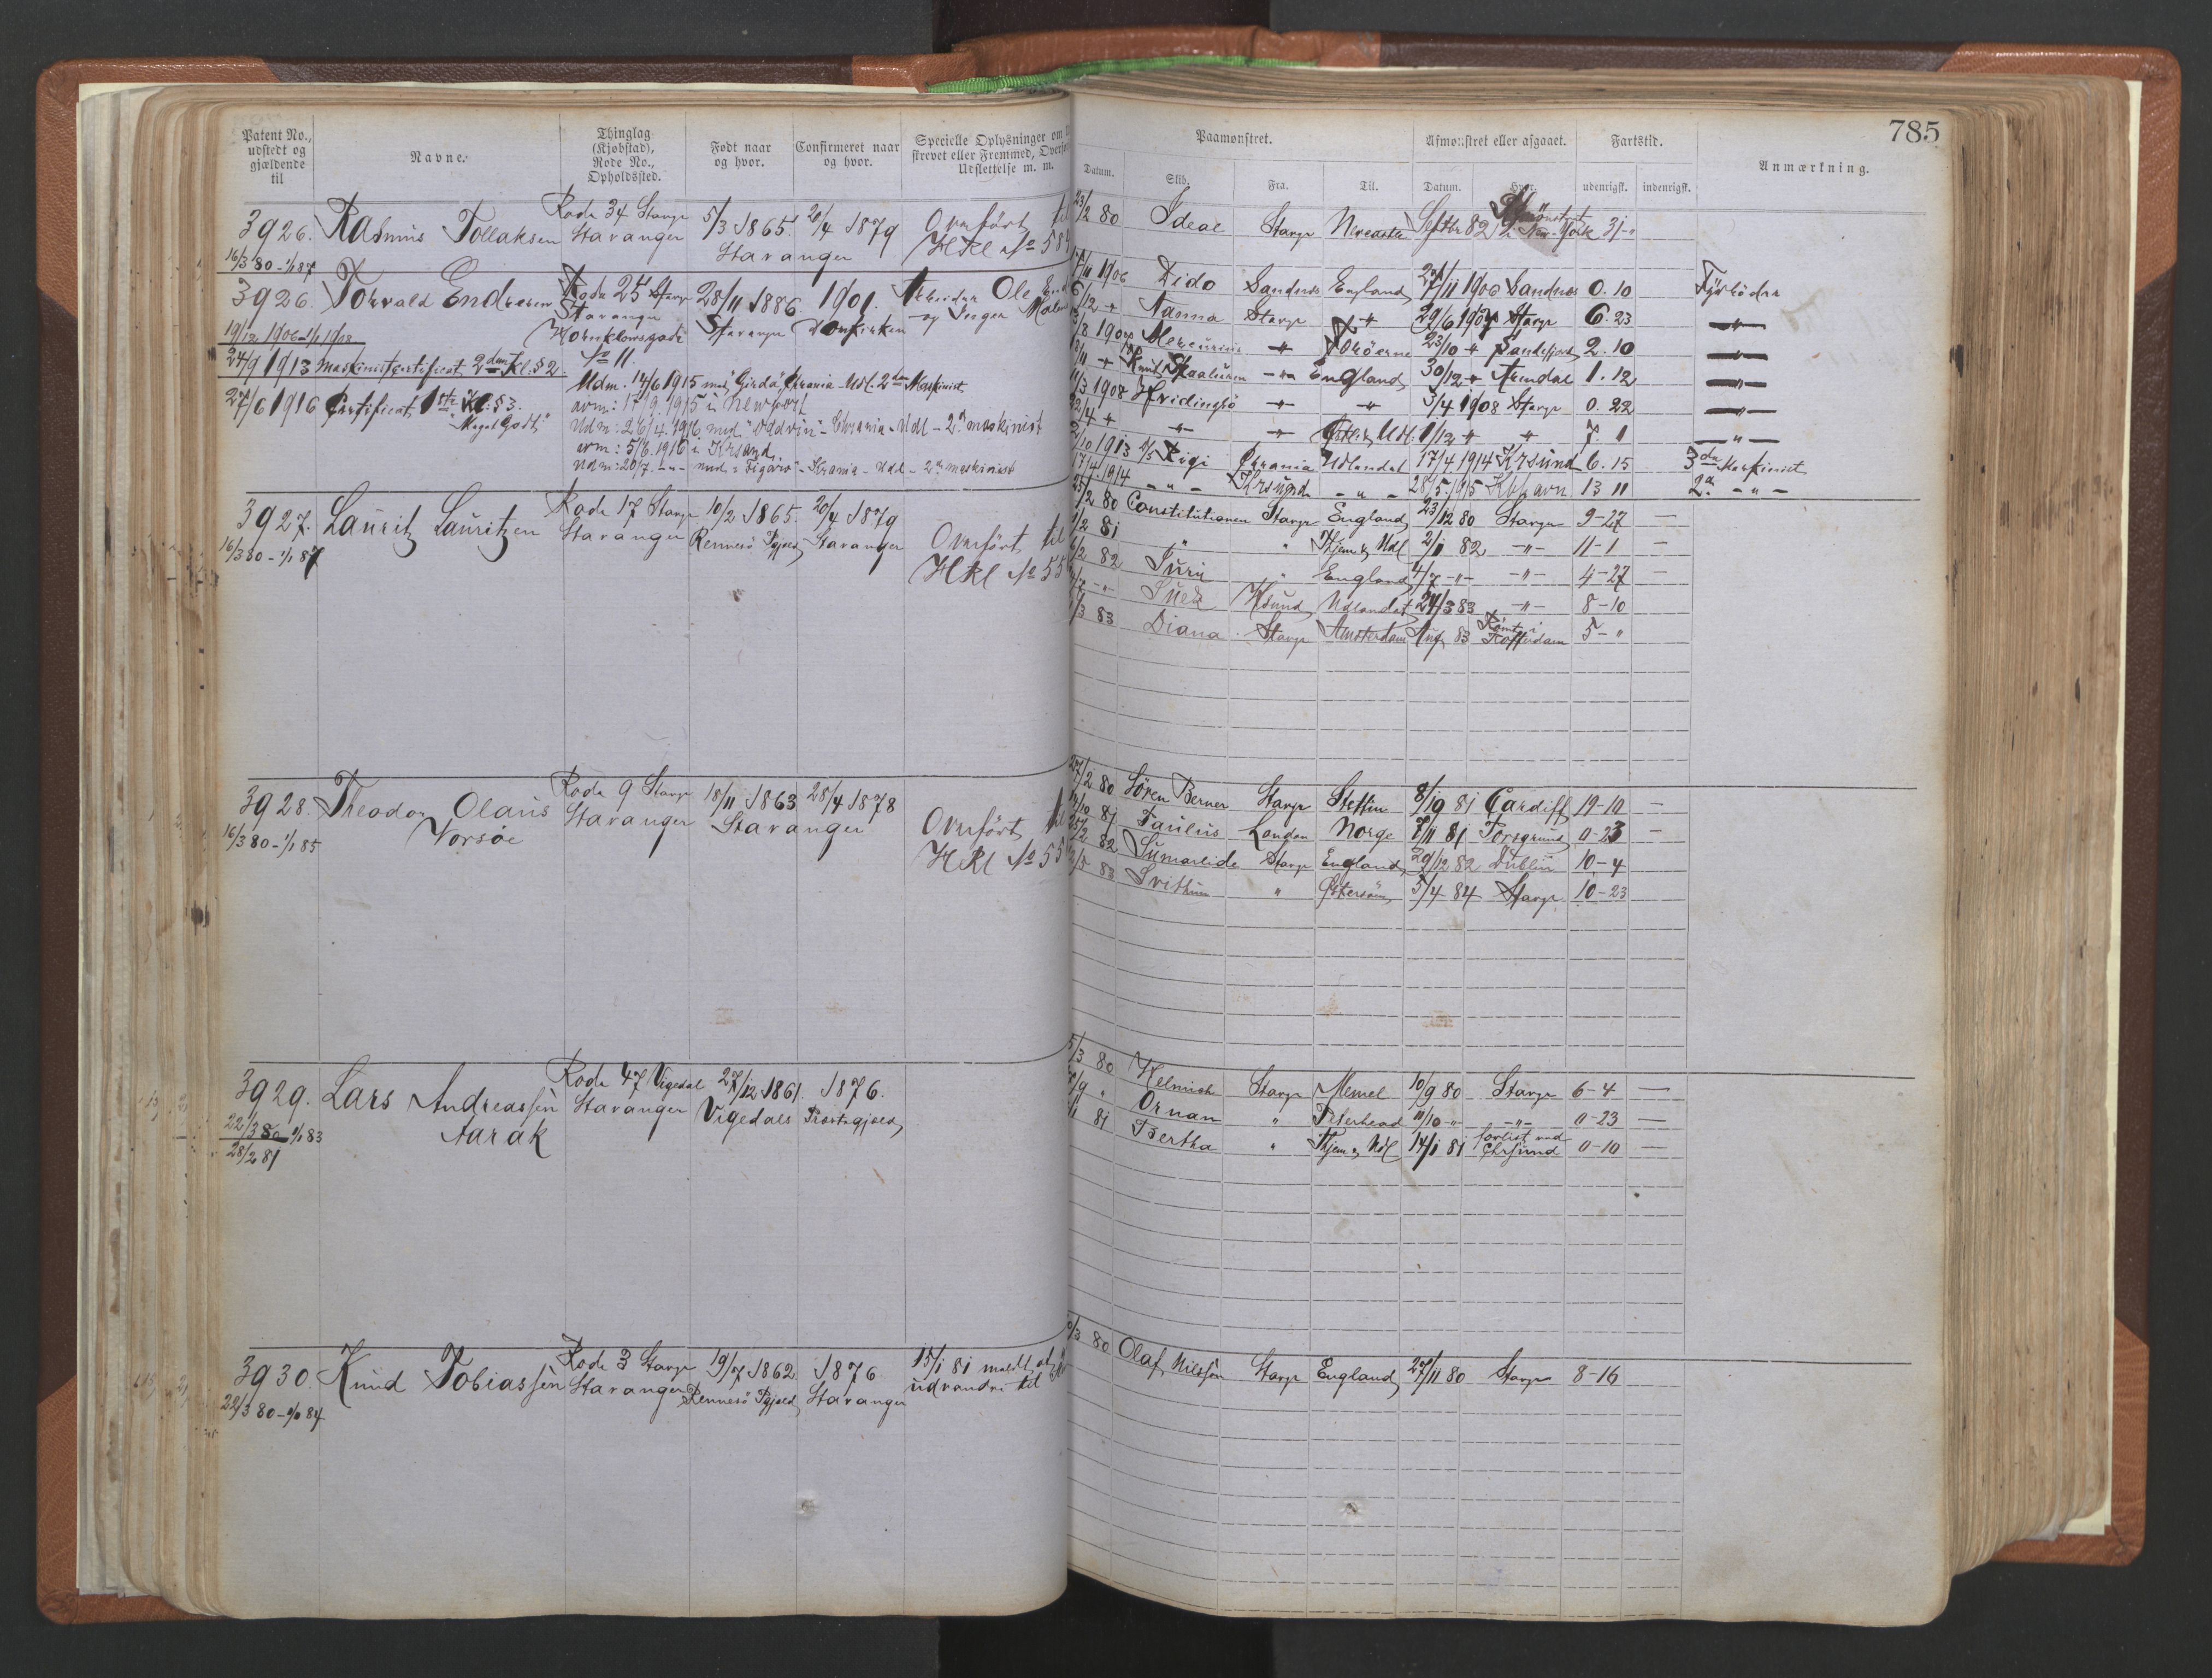 785
Patent No., udstedt og gjældende til
Navne.
Thinglag (Kjøbstad), Rode No., Opholdssted.
Født naar og hvor.
Confirmeret naar og hvor.
Specielle Oplysninger om
strevet eller Fremmed,
Udslettelse m. m.
Paamønstret.
Afmønstret eller afgaaet.
Fartstid.
Anmærkning.
Datum. Skib. Fra. Til. Datum. Hvor. udenrigsk. indenrigsk.
3926. Rasmus Tollaksen Rode 34 Stavgr Stavanger 5/3 1865. Stavanger 20/4 1879 Overført til HRl No 58
16/3 80 - 1/1 87
23/2 80 Ideal Stavgr Septbr 82 New-York
3926. Torvald Endresen Rode 25 Stavgr Stavanger 28/11 1886. Stavanger 1901. Domkirken Arbeider Ole
og Inger
19/12 1906 - 1/1 1908
No 11
24/9 1913 Maskinistcertificat 2den Kl. § 2.
27/6 1916 Certificat 1ste Kl: § 3.
"Meget Godt"
Udm. 14/6 1915 med "Girda" Chrania - Udl. 2den Maskinist
avm: 17/9. 1915 i Newport
Udm: 26/4. 1916 med "Oddvin" - Chrania - Udl - 2. maskinist
avm: 5/6. 1916 i Krsand.
Udm: 20/7. - " - med "Figaro" - Krania - Udl - 2. maskinist
7/11 1906 Dido Sandnes England 27/11 1906 Sandnes 0. 10 Fyrbøder
6/12 " Nanna Stavgr " 29/6 1907 Stavgr 6. 23 - " -
8 1907 Mercurius " 23/10 " Sandefjord 2. 10 - " -
11 " Knut Skaaluren - " - England 30/12 " Arendal 1. 12 - " -
11/3 1908 Hvidingsö " " 3/4 1908 Stavgr 0. 22 - " -
22/4 " " " Udl: 1/12 " " 7. 1 - " -
2/10 1913 D/S Rigi Chrania Udlandet 17/4 1914 Krsund 6. 15 3die Maskinist
17/4 1914 - " - Krsund - " - 28/5. 1915 Kbhavn 13 11 2. - " -
3927. Lauritz Lauritzen Rode 17 Stavgr Stavanger 10/2 1865. Rennesö Pgjæld 20/4 1879 Stavanger Overført til HRl No 55
16/3 80 - 1/1 87
25/2 80 Constitutionen Stavgr England 23/12 80 Stavgr 9-27 -
1/2 81 " " Hjem & Udl 2/1 82 - " - 11-1 -
6/2 82 Juri " England 4/7 - " - - " - 4-27 -
Suez Udlandet 24/3 83 - " - 8-10
1/3 83 Diana Stavgr Amsterdam Aug 83 Rømt i Rotterdam 5- "
3928. Theodor Olaus Vorsøe Rode 9 Stavgr Stavanger 18/11 1863 Stavanger 28/4 1878 Overført til HRl No 55
16/3 80 - 1/1 85
27/2 80 Sören Berner Stavgr Stettin 8/9 81 Cardiff 19-10 -
10 81 Paulus London Norge 7/11 81 Porsgrund 0-23 -
25/2 82 Sumarlide Stavgr England 29/12 82 Dublin 10-4
5 83 Svithun " Østersøen 5/4 84 Stavgr 10-23
3929. Lars Andreassen Aarak Rode 47 Vigedal Stavanger 27/12 1861. Vigedals Præstegjæld 1876.
22/3 80 1/1 83
28/2 81
5/3 80 Helmich Stavgr Memel 10/9 80 Stavgr 6-4 -
9 " Ornan " Peterhead 11/10 - " - - " - 0-23 -
81 Bertha " Hjem & Udl 14/1 81 forlist ved Chrsund 0-10 -
3930. Knud Tobiassen Rode 3 Stavgr Stavanger 19/7 1862. Rennesö Pgjæld 1876 Stavanger 15/1 81 meldt at udvandre til
22/3 80 - 1/1 84
3 80 Olaf Nilssen Stavgr England 27/11 80 Stavgr 8-16